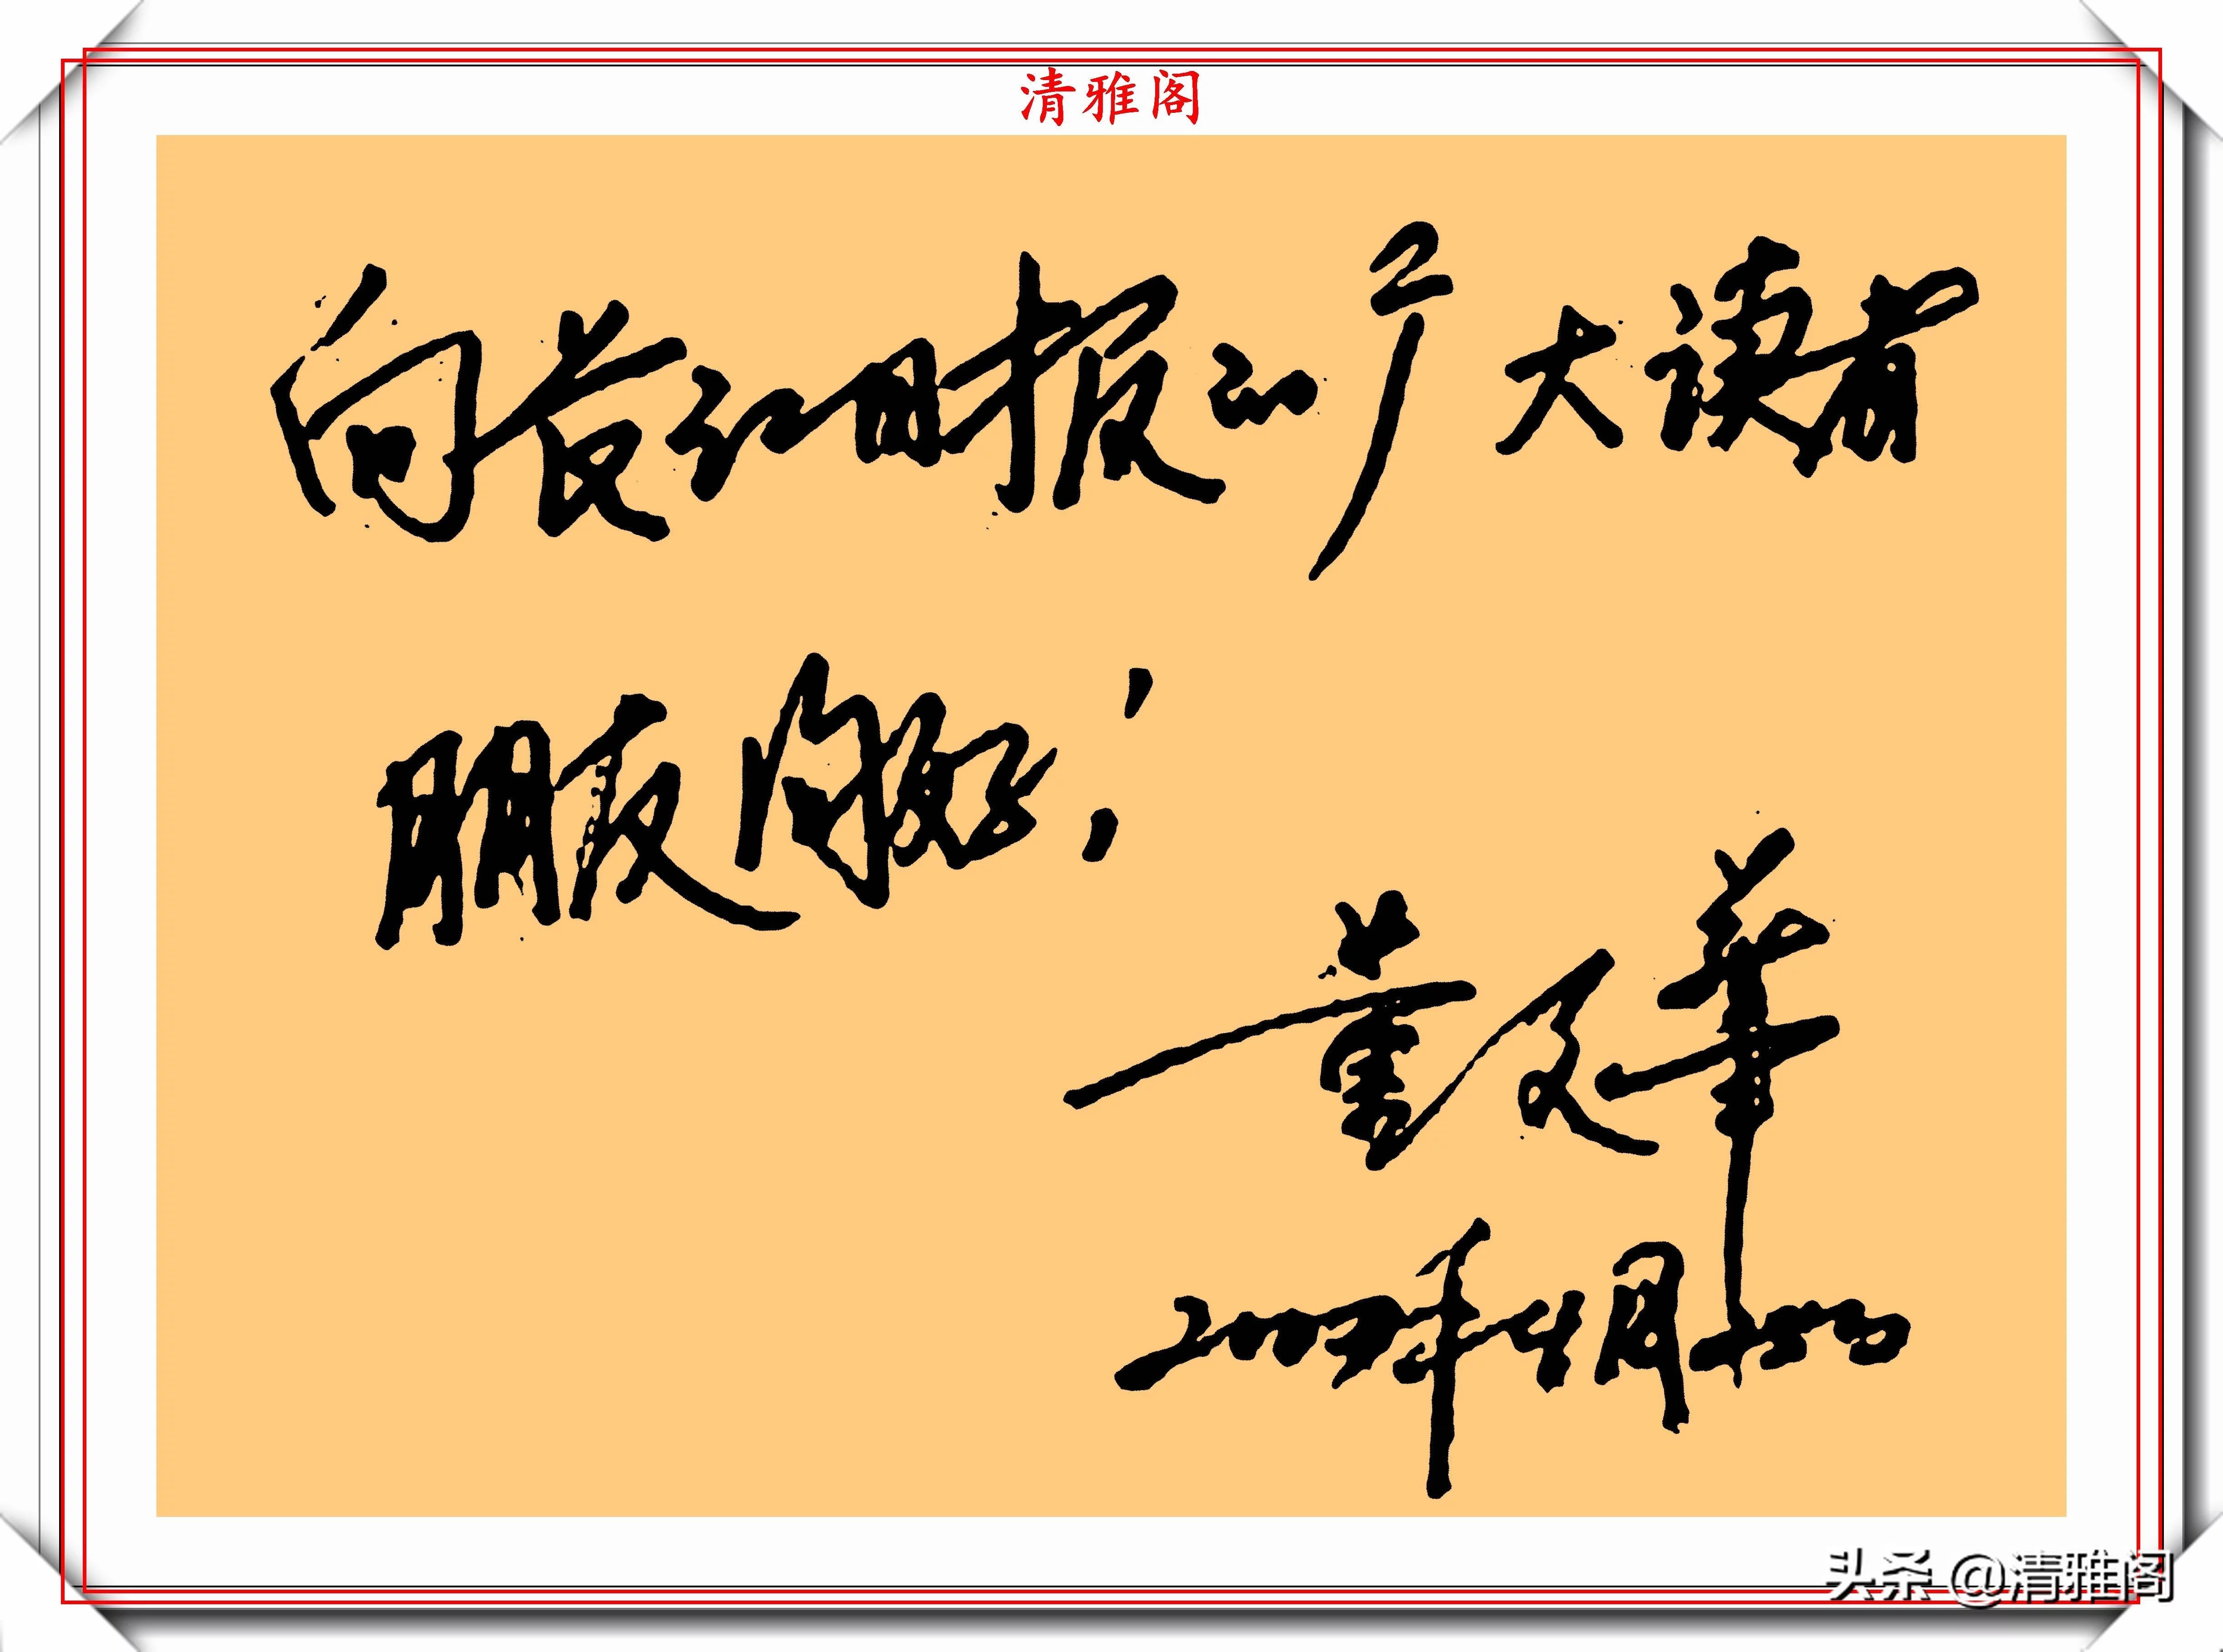 清雅阁
向长江日报的广大读者
朋友问好！
董华
2007年4月
头条 @清雅阁